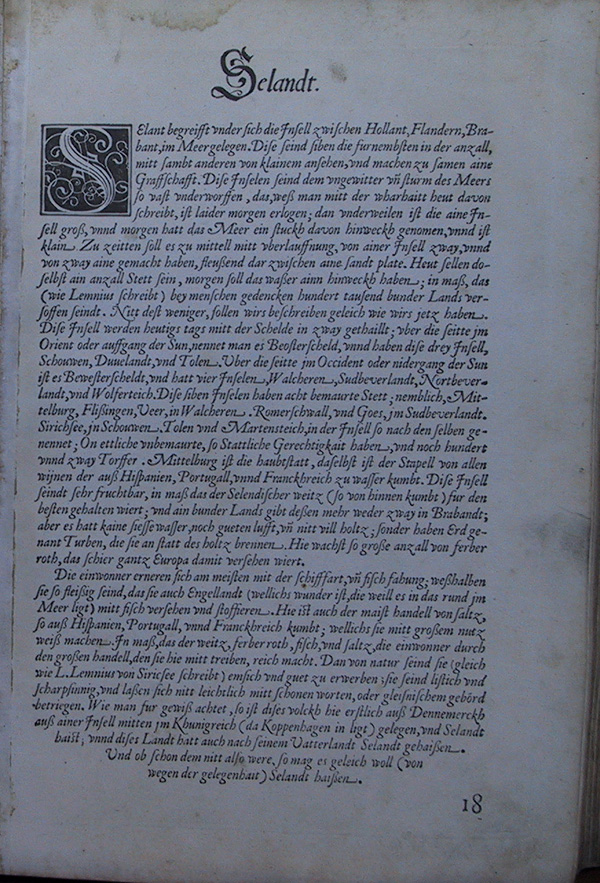 Selandt.
SElant begreifft vnder sich die Jnsell zwischen Hollant, Flandern, Bra-
bant, im Meer gelegen. Dise seind siben die furnembsten in der anzall,
mitt sambt anderen von klainem ansehen, vnd machen zu samen aine
Graffschafft. Dise Jnselen seind dem vngewitter vñ sturm des Meers
so vast vnderworffen, das, weß man mitt der wharhaitt heut davon
schreibt, ist laider morgen erlogen; dan vnderweilen ist die aine Jn-
sell groß, vnnd morgen hatt das Meer ein stuckh davon hinweckh genomen, vnnd ist
klain. Zu zeitten soll es zu mittell mitt vberlauffnung, von ainer Jnsell zway, vnnd
von zway aine gemacht haben, fleußend dar zwischen aine sandt plate. Heut sellen do-
selbst ain anzall Stett sein, morgen soll das waßer ainn hinweckh haben; in maß, das
(wie Lemnius schreibt) bey menschen gedencken hundert tausend bunder Lands ver-
soffen seindt. Nitt dest weniger, sollen wirs beschreiben geleich wie wirs jetz haben.
Dise Jnsell werden heutigs tags mitt der Schelde in zway gethaillt; vber die seitte jm
Orient oder auffgang der Sun, nennet man es Beosterscheld, vnnd haben dise drey Jnsell,
Schouwen, Duuelandt, vnd Tolen. Vber die seitte jm Occident oder nidergang der Sun
ist es Bewesterscheldt, vnd hatt vier Jnselen, Walcheren, Sudbeverlandt, Nortbever-
landt, vnd Wolferteich. Dise siben Jnselen haben acht bemaurte Stett; nemblich, Mit-
telburg, Flißingen, Veer, in Walcheren. Romerschwall, vnd Goes, jm Sudbeverlandt.
Siricksee, jn Schouwen. Tolen vnd Martensteich, in der Jnsell so nach den selben ge-
nennet; On ettliche vnbemaurte, so Stattliche Gerechtigkait haben, vnd noch hundert
vnnd zway Torffer. Mittelburg ist die haubtstatt, daselbst ist der Stapell von allen
wijnen der auß Hispanien, Portugall, vnnd Franckhreich zu wasser kumbt. Dise Jnsell
seindt sehr fruchtbar, in maß das der Selendischer weitz (so von hinnen kumbt) fur den
besten gehalten wiert; vnd ain bunder Lands gibt deßen mehr weder zway in Brabandt;
aber es hatt kaine siesse wasser, noch gueten lufft, vñ nitt vill holtz; sonder haben Erd ge-
nant Turben, die sie an statt des holtz brennen. Hie wachst so große anzall von ferber
roth, das schier gantz Europa damit versehen wiert.
Die einwonner erneren sich am meisten mit der schiffart, vñ fisch fahung; weßhalben
sie so fleißig seind, das sie auch Engellandt (wellichs wunder ist, die weill es in das rund jm
Meer ligt) mitt fisch versehen vnd stoffieren. Hie ist auch der maist handell von saltz,
so auß Hispanien, Portugall, vnnd Franckhreich kumbt; wellich sie mitt großem nutz
weiß machen. Jn maß, das der weitz, ferberroth, fisch, vnd saltz, die einwonner durch
den großen handell, den sie hie mitt treiben, reich macht. Dan von natur seind sie (gleich
wie L. Lemnius von Siricsee schreibt) emsich vnd guet zu erwerben; sie seind listich vnd
scharpsinnig, vnd laßen sich nitt leichtlich mitt schonen worten, oder gleisnischem gebörd
betriegen. Wie man fur gewiß achtet, so ist dises volckh hie erstlich auß Dennemerckh
auß ainer Jnsell mitten jm Khunigreich (da Koppenhagen in ligt) gelegen, vnd Selandt
haist; vnnd dises Landt hatt auch nach seinem Vatterlandt Selandt gehaißen.
Und ob schon dem nitt also were, so mag es geleich woll (von
wegen der gelegenhait) Selandt haißen.
18